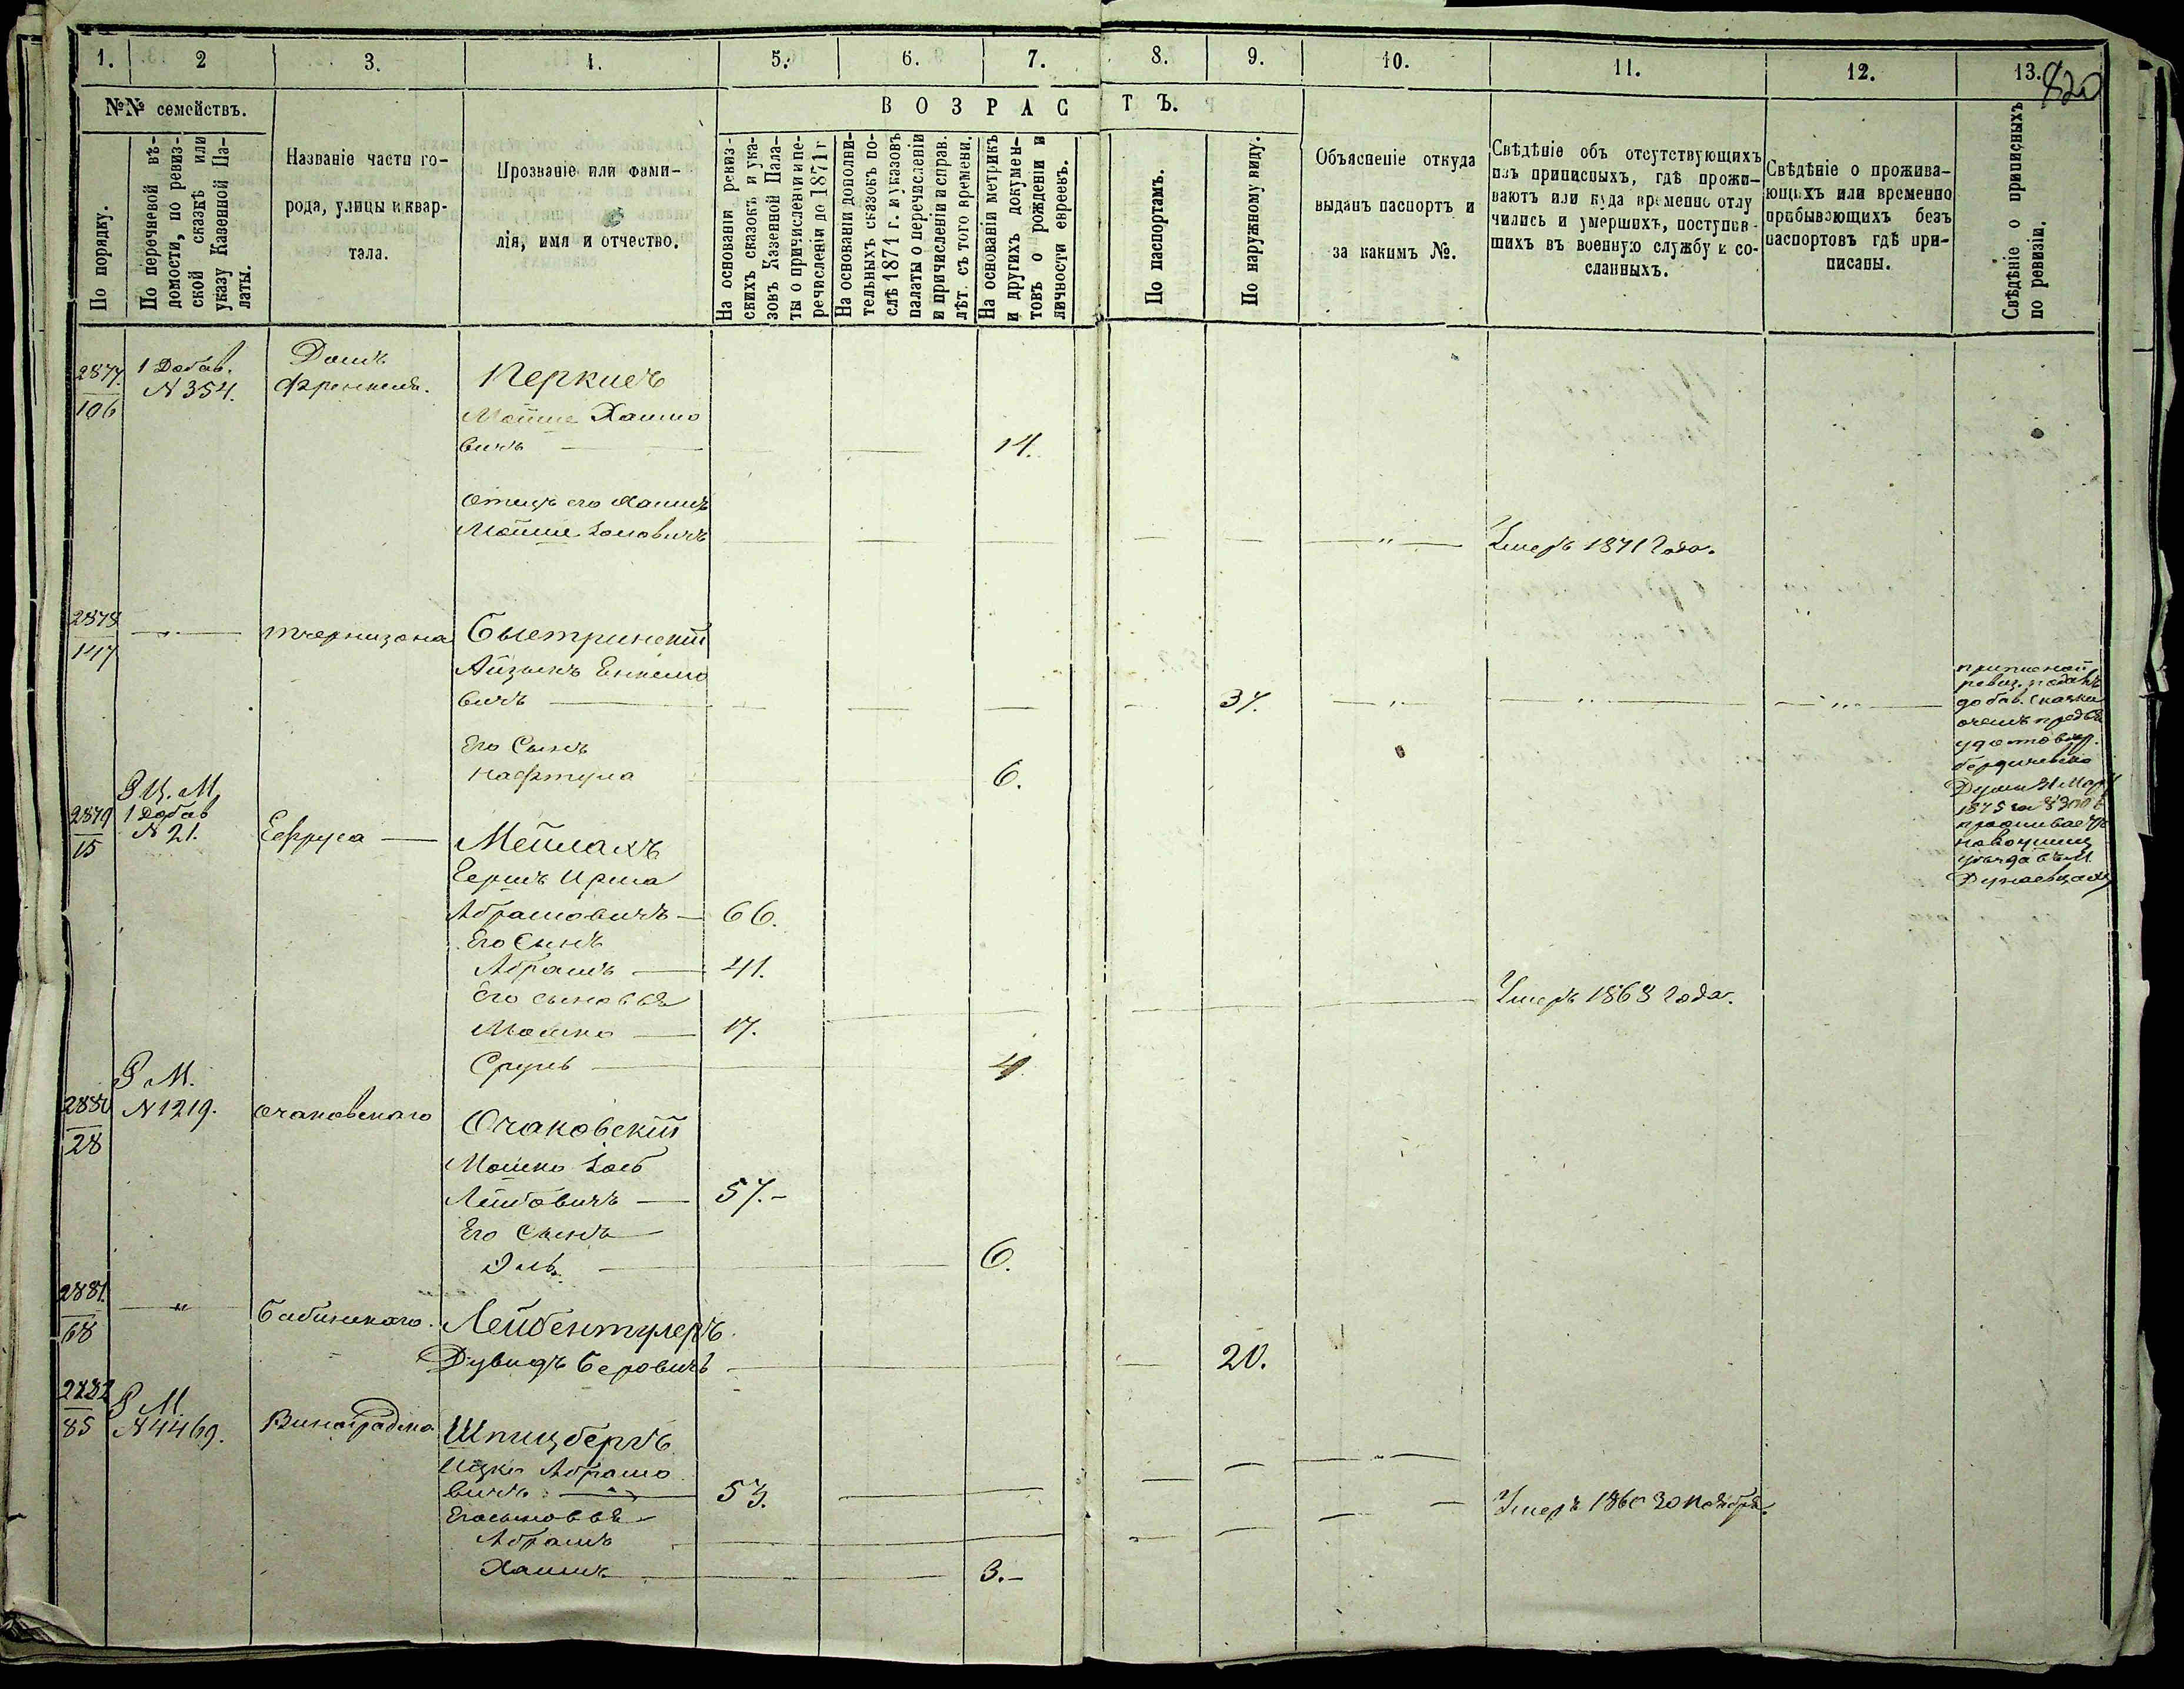 1. 2 3. 4. 5. 6. 7. 8. 9. 10. 11. 12. 13.
820
№№ семействъ.
ВОЗРАСТЪ.
По порядку.
По перечневой вѣ-
домости, по ревиз-
ской сказкѣ или
указу Казенной Па-
латы.
Названіе части го-
рода, улицы и квар-
тала.
Прозваніе или фами-
лія, имя и отчество.
На основаніи ревиз-
скихъ сказокъ и ука-
зовъ Казенной Пала-
ты о причисленіи и пе-
речисленіи до 1871 г
На основаніи дополни-
тельныхъ сказокъ по-
слѣ 1871 г. и указовъ
палаты о перечисленіи
и причисленіи и справ.
лѣт. съ того времени.
На основаніи метрикъ
и другихъ докумен-
товъ о рожденіи и
личности евреевъ.
По паспортамъ.
По наружному виду.
Объясненіе откуда
выданъ паспортъ и
за какимъ №.
Свѣдѣніе объ отсутствующихъ
изъ приписныхъ, гдѣ прожи-
ваютъ или куда временно отлу
чились и умершихъ, поступив-
шихъ въ военную службу и со-
сланныхъ.
Свѣдѣніе о прожива-
ющихъ или временно
пребывающихъ безъ
паспортовъ гдѣ при-
писаны.
Свѣдѣніе о приписныхъ
по ревизіи.
2877. 1 Добав. Домъ
106 N 354. Френкеля. Перкисъ
Мойше Хаимо
вичъ — 14.
Отецъ его Хаимъ
Мойше Зоновичъ — — — — — — " — Умеръ 1871 Года.
2878 — " —
147 Быстринскій
Айзыкъ Енкелио
вичъ — — — — — 37. — " — — " — — " —
Его Сынъ
Нафтула 6.
приписной
добав. сказки
Думы 31 Мар
1875 за №
проживаетъ
уѣзда въ М
Дунаевцахъ
Р Ц. М.
2879 1 Добав
15 N 21. Ефруса — Мейлахъ
Гершъ Ирша
Абрамовичъ — 66.
Его Сынъ
Абрамъ — 41.
Его сыновья — — Умеръ 1868 Года.
Мошко — 17.
Сруль — 4
Р М.
2880 N 1219. Очаковскаго
28 Очаковскій
Мошко Зосъ
Лейбовичъ — 57.-
Его Сынъ
Эль — 6.
2881. — " — Бабинскаго.
68 Лейбентулеръ
Дувидъ Беровичъ — — 20.
2882 Р М
85 N 4469. Виноградна Шпицбергъ
Ицко Абрамо
вичъ — 53. — — — — " — Умеръ 1860 30 Ноября.
Его сыновья
Абрамъ — — —
Хаимъ — 3.-